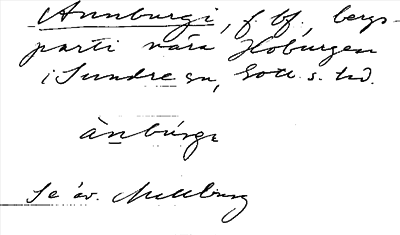 Annburgi, f. bf., bergs-
parti nära Hoburgen
i Sundre sn, Gotl. s. hd.
ànbúrgi
Se äv. Mellburg